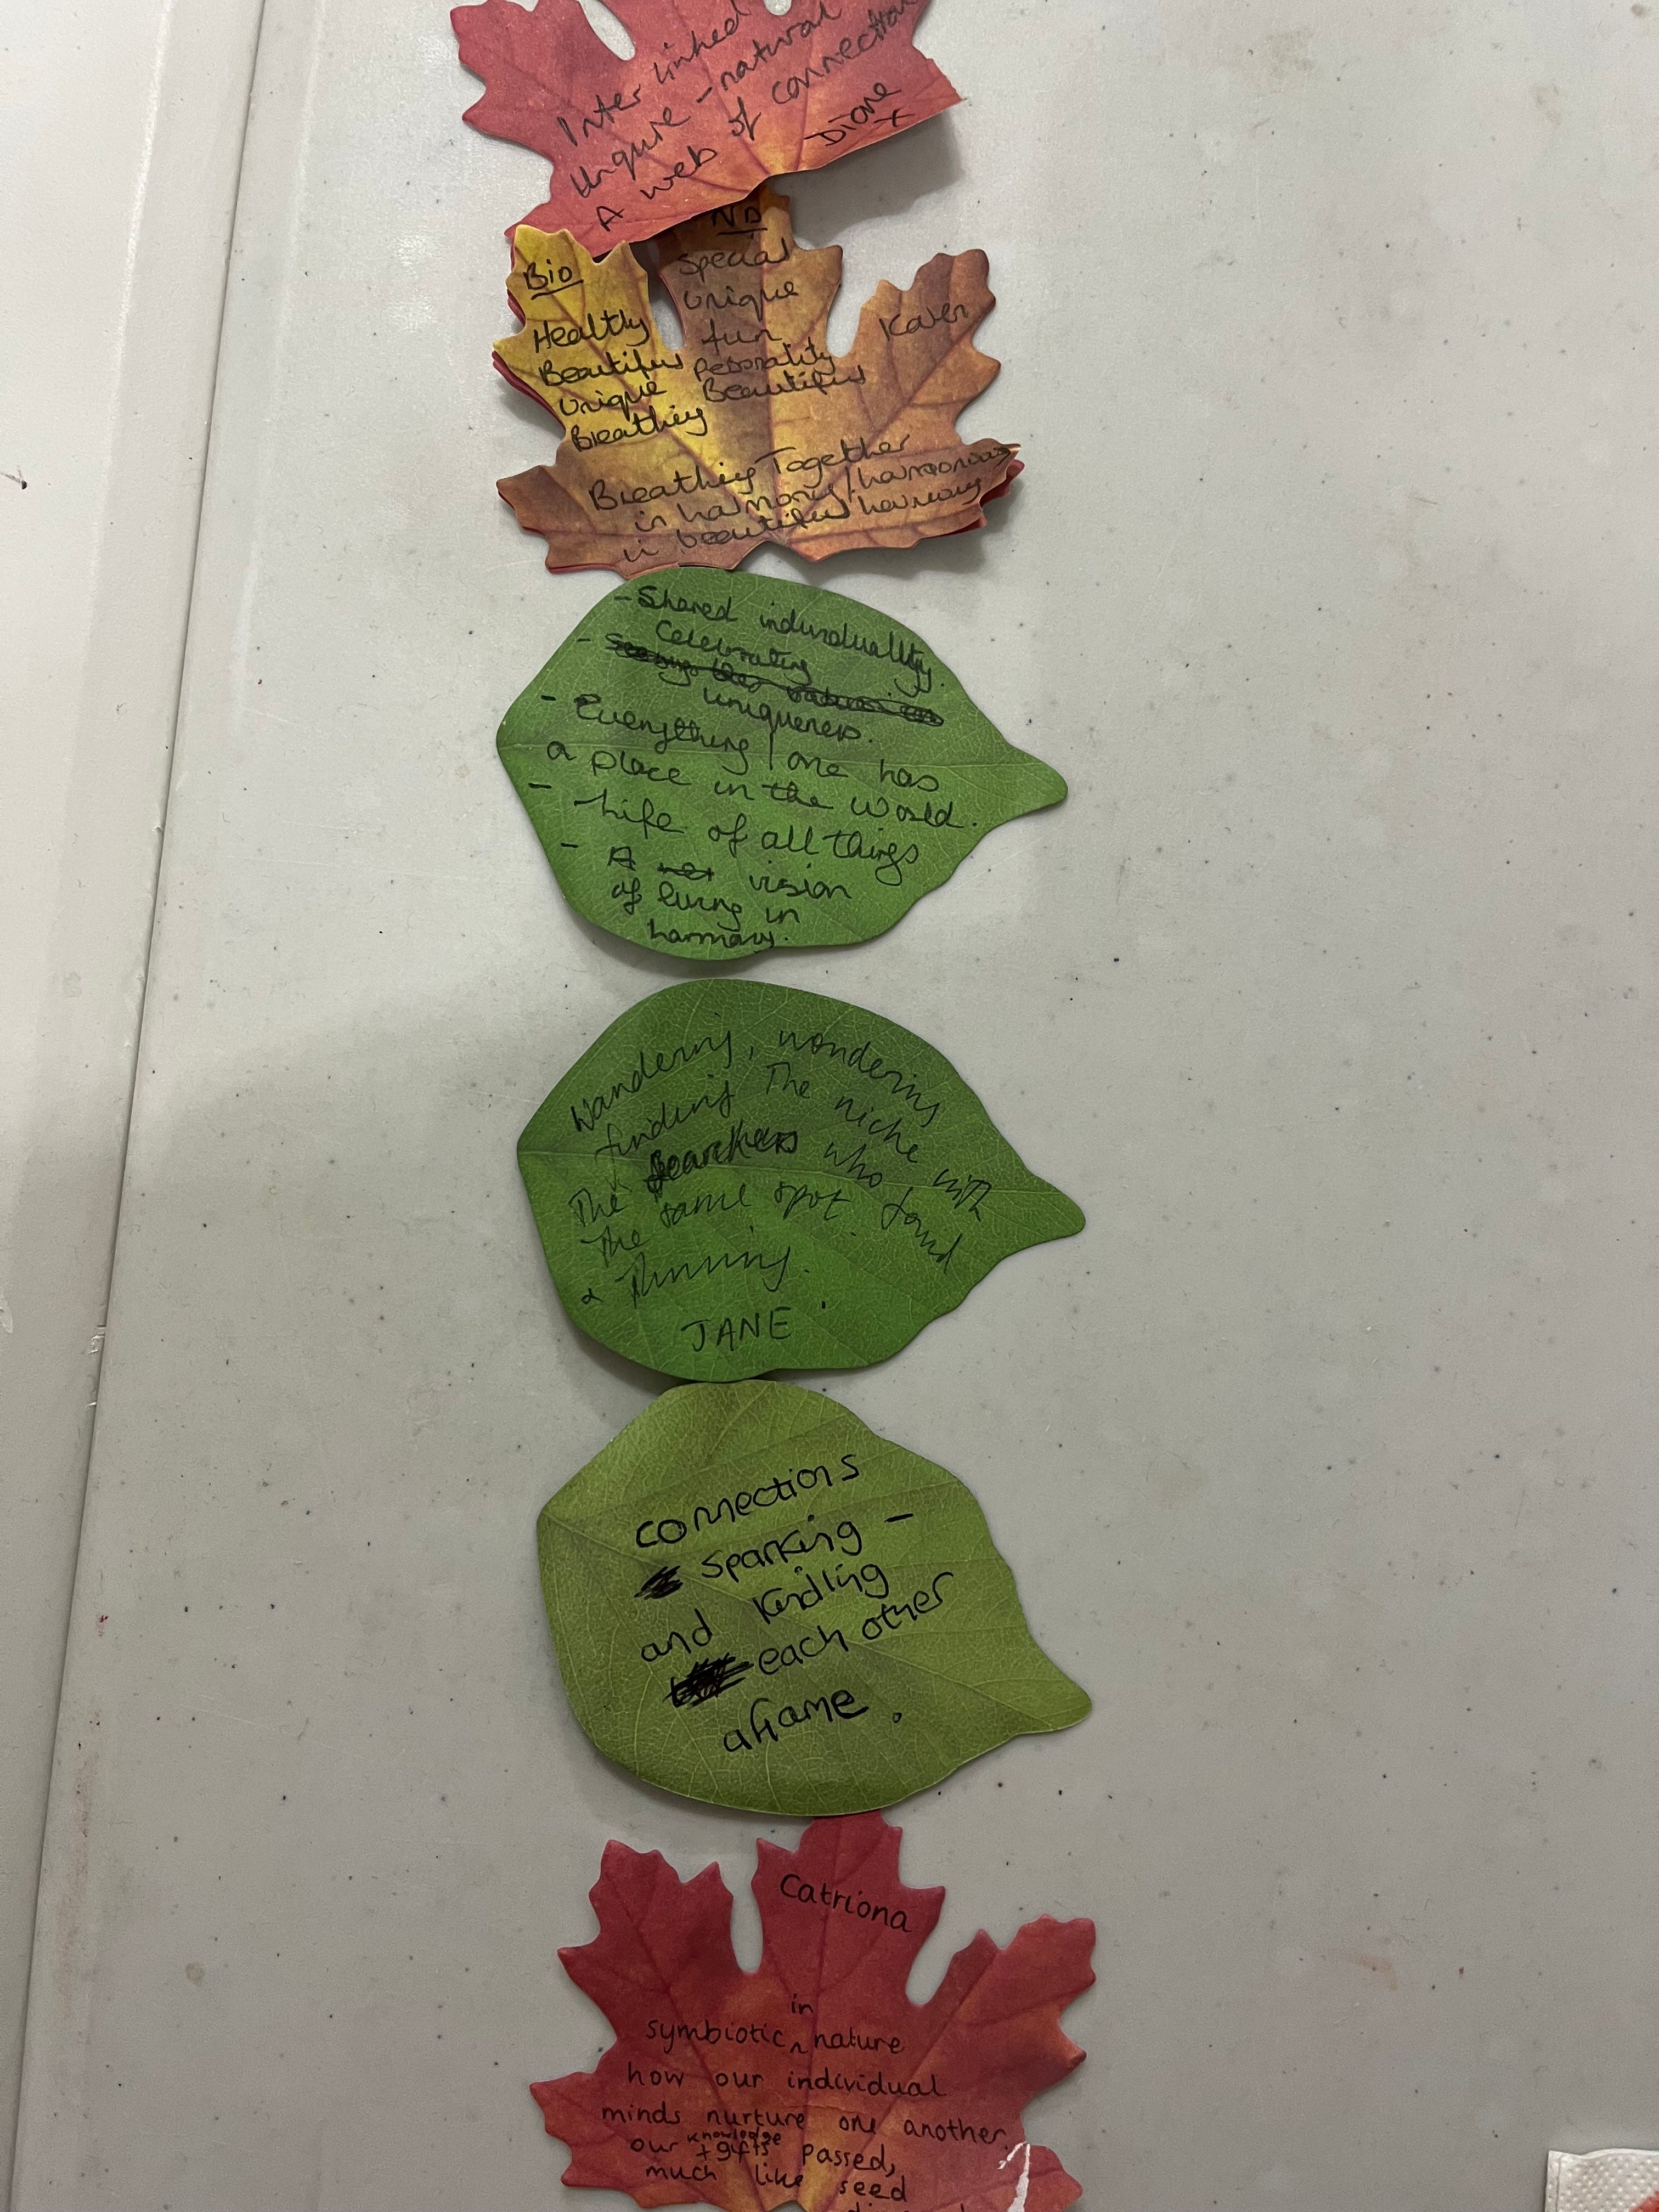 Inter linked
Unquie - natural
A web of connection
Diane
x
Bio
Healthy
Beautiful
Unique
Breathing
ND
Special
Unique
fun
Pesonality
Beautiful
Karen
Breathing Together
in harmony / harmonious
in beautiful harmony
- Shared individuality.
- Celebrating
uniqueness.
- Everything / one has
a place in the world.
- Life of all things
- A vision
of living in
harmony.
Wandering, wondering
finding The niche with
The Searchers who found
The same spot.
JANE
connections
sparking -
and kindling
each other
aflame.
Catriona
in
symbiotic ^ nature
how our individual
minds nurture one another.
our knowledge + gifts passed,
much like seed